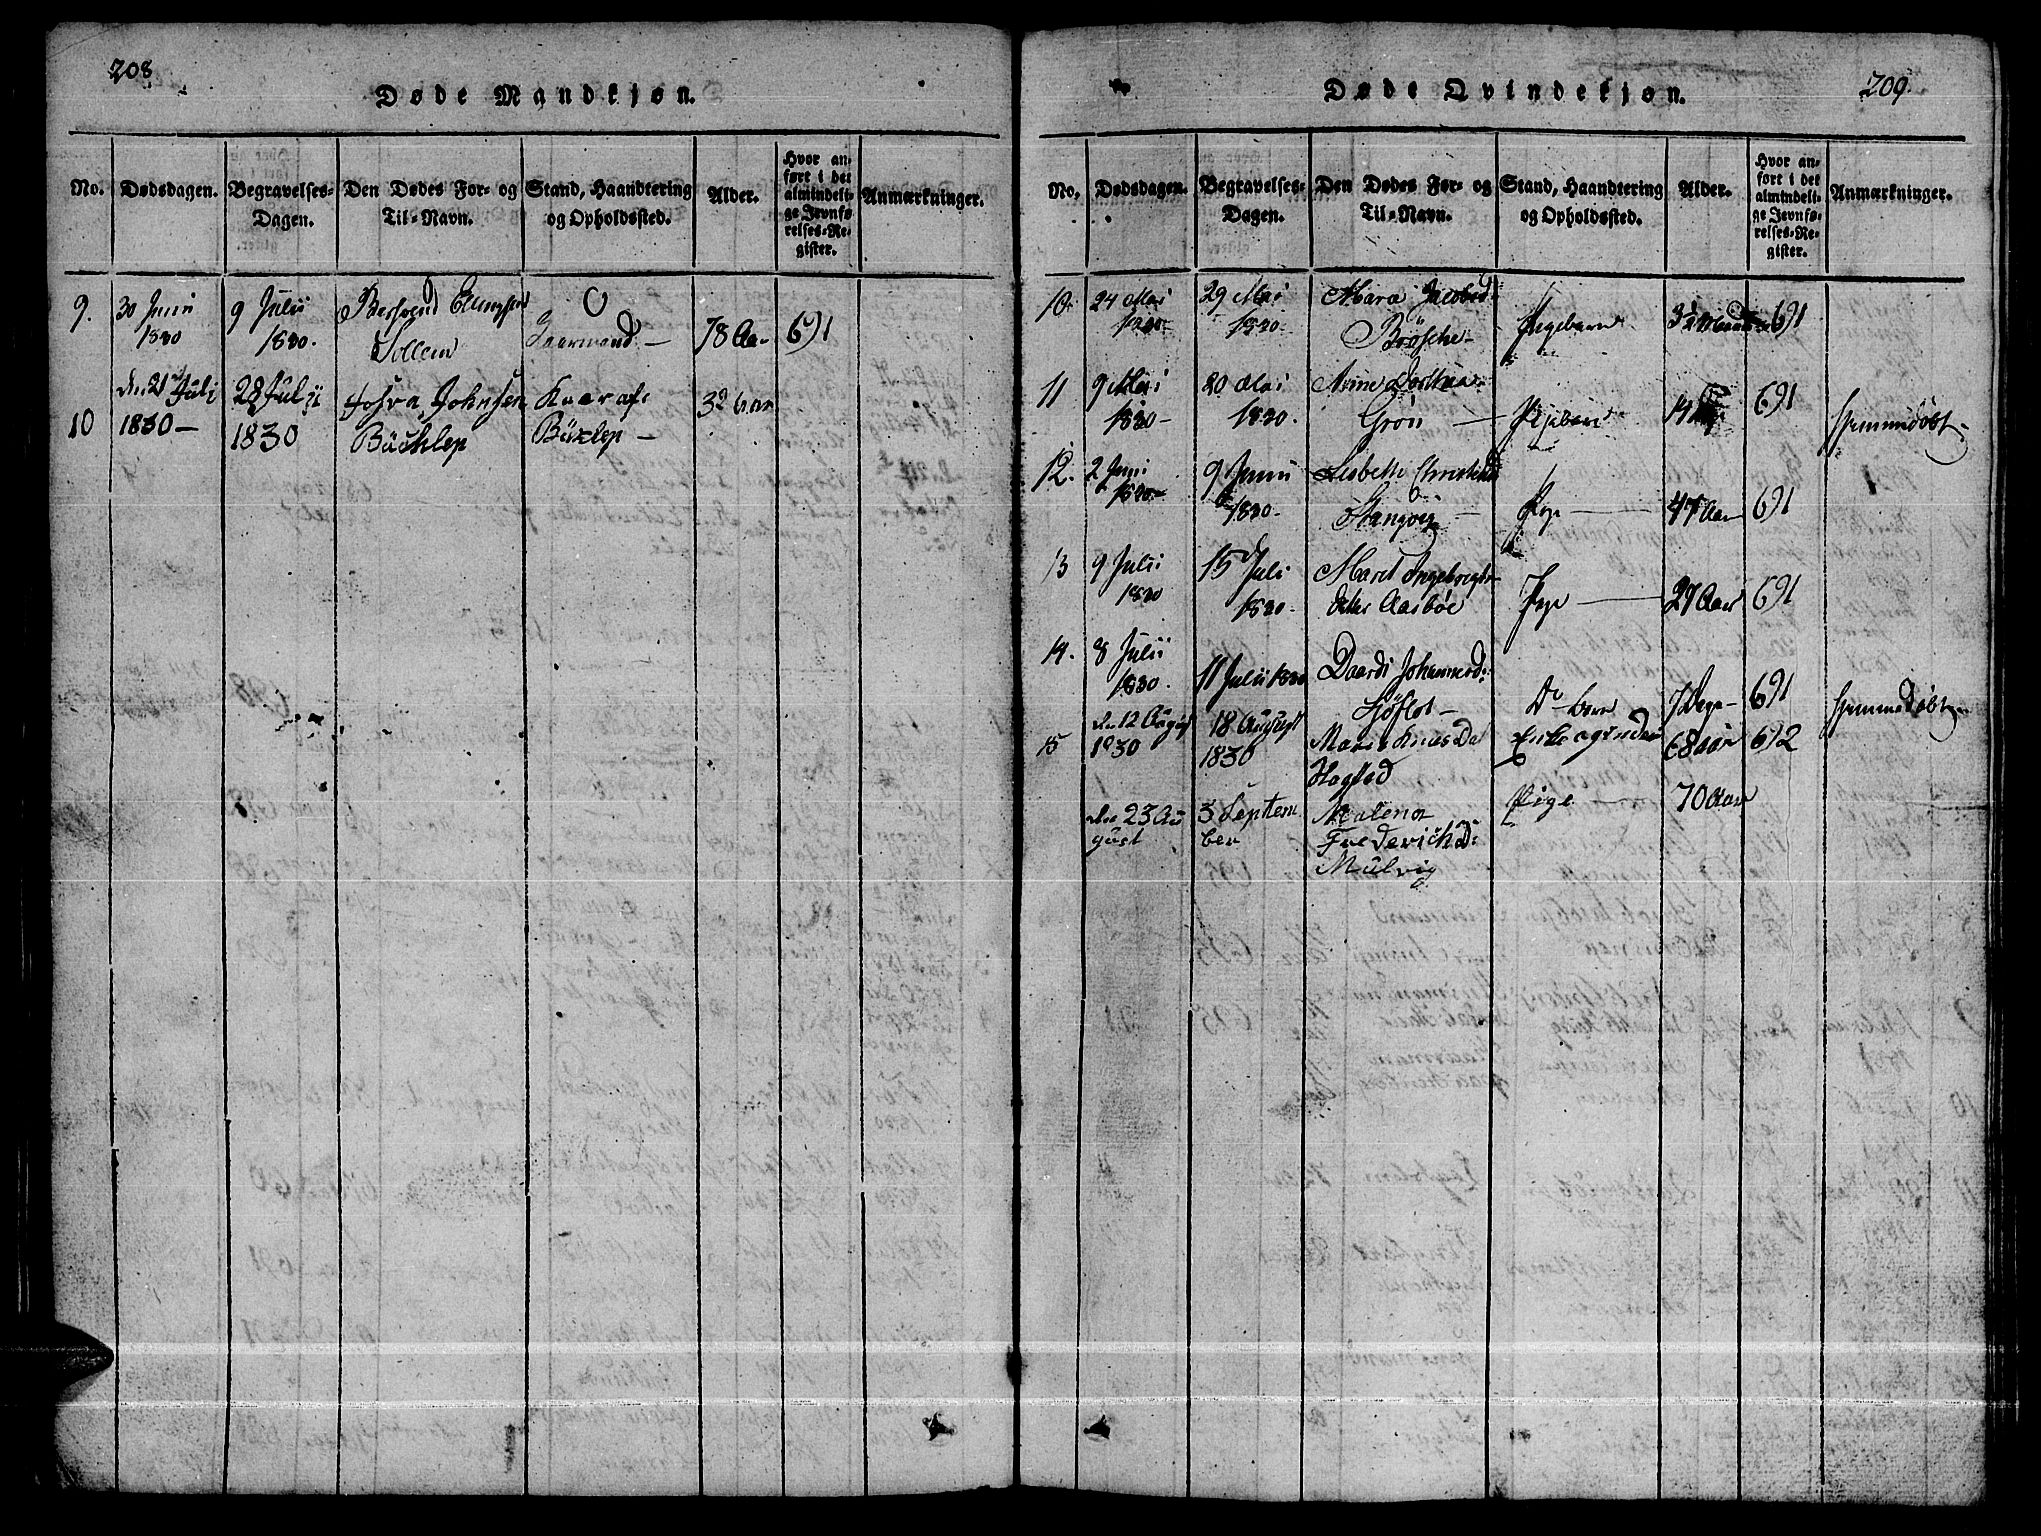 208
Døde Mandkjøn.
No.
Dødsdagen.
Begravelses-
Dagen.
Den Dødes For- og
Til-Navn.
Stand, Haandtering
og Opholdssted.
Alder.
Hvor an-
ført i det
almindeli-
ge Jevnfø-
relses-Re-
gister.
Anmærkninger.
9.
30 Junii
1830
9 Julii
1830.
Sollem
Gaarmand
78 Aar
691
10
den 21 Juli
1830
28 Julii
1830
Johnsen
Büchlep
Kaar af
32 aar
209.
Døde Qvindekjøn.
No.
Dødsdagen.
Begravelses-
Dagen.
Den Dødes For- og
Til-Navn.
Stand, Haandtering
og Opholdssted.
Alder.
Hvor an-
ført i det
almindeli-
ge Jevnfø-
relses-Re-
gister.
Anmærkninger.
10.
24 Mai
1830
29 Mai
1830
Jacobsd:
Brösche
Pigebarn
691
11
9 Mai
1830
20 Mai
1830.
Anne Dorthea
Grön
Pigebarn
14
691
hjemmedöbt
12.
2 Junii
1830
9 Junii
1830
Lisbeth
Stangvig
Pige
47 Aar
691
13
9 Julii
1830
15 Juli
1830
Maret Ingebregts-
dater Aasböe
Pige
27 Aar
691
14.
8 Julii
1830.
11 Julii 1830
Johannesd:
Sjöflot
Do barn
7 Dage
691
hjemmedöbt
15
den 12 August
1830
18 August
1830
Knudsd
Hagstad
Enke
68 aar
692
den 23 Au
gust
3 Septem
ber
Malena
Frederichsd:
Mülvig
Pige
70 Aar